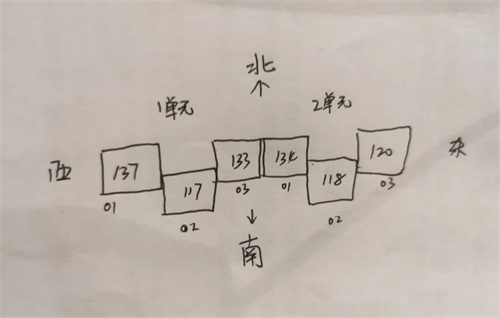 北
1单元 2单元
西 137 117 133 134 118 120 东
01 02 03 01 02 03
南